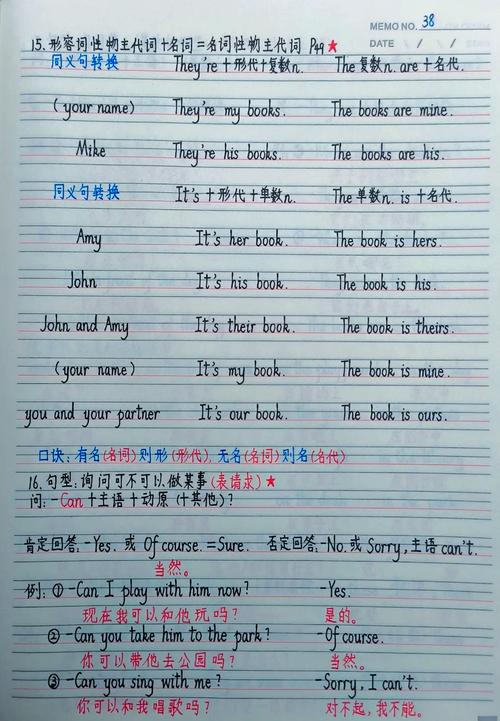 MEMO NO. 38
DATE / / /
15. 形容词性物主代词+名词=名词性物主代词 P49 ★
同义句转换 They're +形代+复数n. The 复数n. are +名代.
(your name) They're my books. The books are mine.
Mike They're his books. The books are his.
同义句转换 It's +形代+单数n. The 单数n. is +名代.
Amy It's her book. The book is hers.
John It's his book. The book is his.
John and Amy It's their book. The book is theirs.
(your name) It's my book. The book is mine.
you and your partner It's our book. The book is ours.
口诀: 有名(名词)则形(形代), 无名(名词)则名(名代)
16. 句型: 询问可不可以做某事(表请求) ★
问: -Can +主语+动原(+其他)?
肯定回答: -Yes. 或 Of course. =Sure. 否定回答: -No. 或 Sorry, 主语 can't.
当然。
例: ① -Can I play with him now? -Yes.
现在我可以和他玩吗? 是的。
② -Can you take him to the park? -Of course.
你可以带他去公园吗? 当然。
③ -Can you sing with me? -Sorry, I can't.
你可以和我唱歌吗? 对不起,我不能。